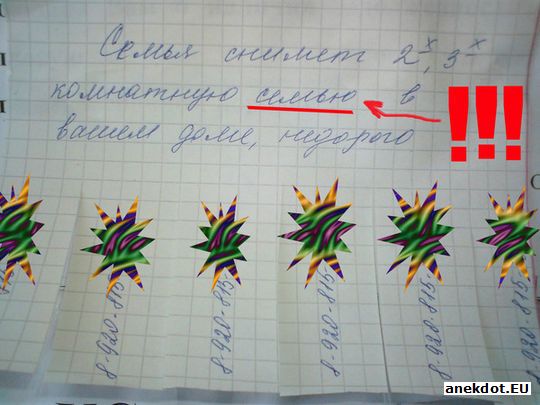 Семья снимет 2х, 3х
комнатную семью в
вашем доме, недорого
!!!
8-920-815-
8-920-815-
8-920-815-
8-920-815-
8-920-815-
anekdot.EU